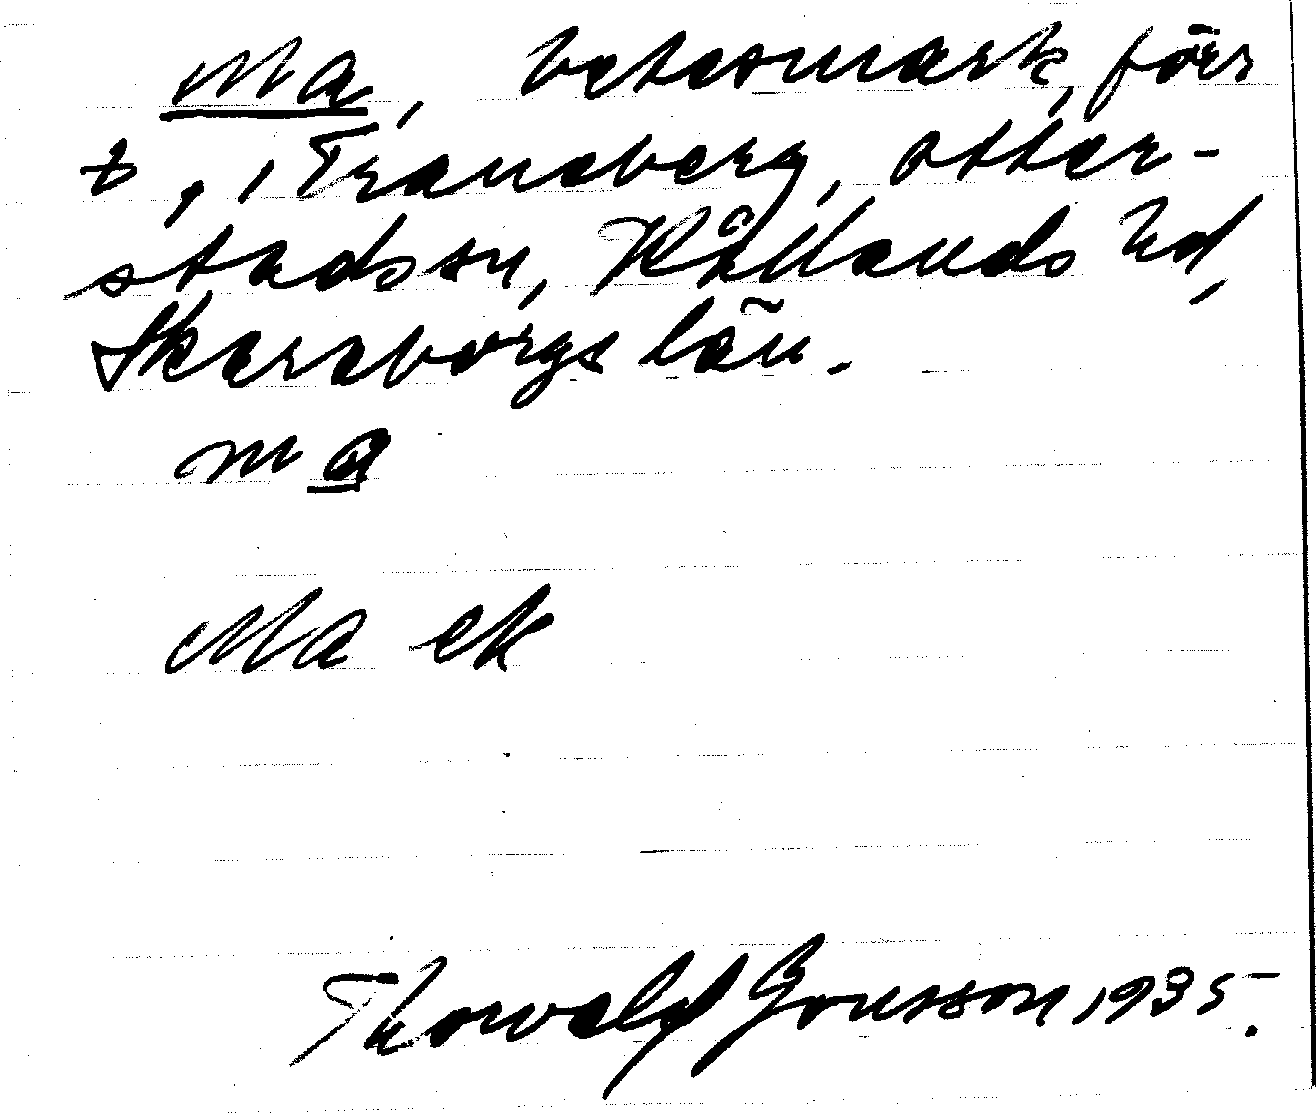 Ma, betesmark, förr
t, i Traneberg, Otter-
stads sn, Kållands hd,
Skaraborgs län.
ma
Ma ek
Thorwald Jonsson 1935.